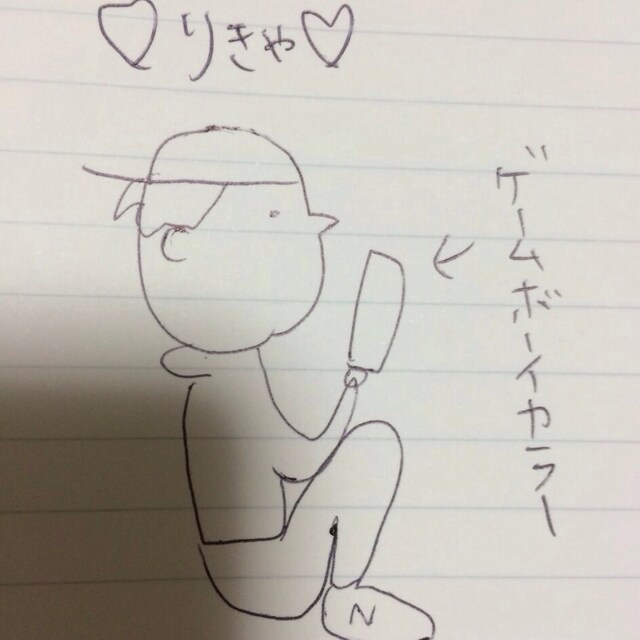 ♡りきや♡
ゲームボーイカラー
N